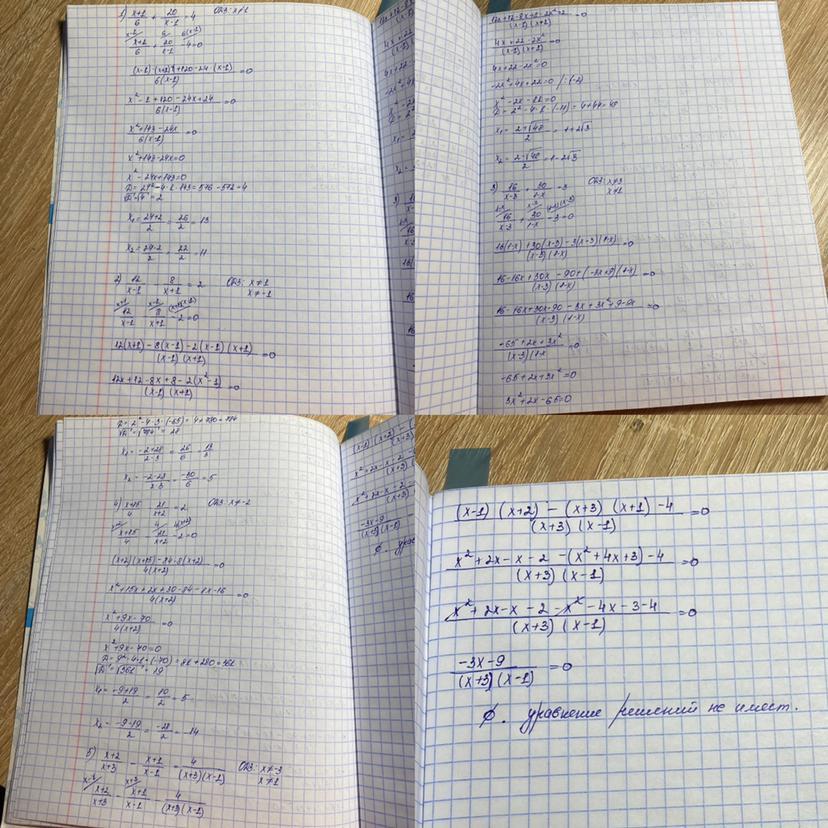 1) x+1/6 + 20/x-1 = 4 ОДЗ: x≠1
x+1/6 + 20/x-1 - 4 = 0
(x-1)·(x+1)+120-24·(x-1)/6(x-1) = 0
x²-1+120-24x+24/6(x-1) = 0
x²+143-24x/6(x-1) = 0
x²+143-24x=0
x²-24x+143=0
D = 24²-4·1·143=576-572=4
√D=√4=2
x₁=24+2/2=26/2=13
x₂=24-2/2=22/2=11
2) 12/x-1 - 8/x+1 = 2 ОДЗ: x≠1
x≠-1
12/x-1 - 8/x+1 - 2=0
12(x+1)-8(x-1)-2(x-1)(x+1)/(x-1)(x+1) = 0
12x+12-8x+8-2(x²-1)/(x-1)(x+1) = 0
12x+12-8x+8-2x²+2/(x-1)(x+1) = 0
4x+22-2x²/(x-1)(x+1) = 0
4x+22-2x²=0
-2x²+4x+22=0 /:(-2)
x²-2x-11=0
D=2²-4·1·(-11)=4+44=48
x₁=2+√48/2=1+2√3
x₂=2-√48/2=1-2√3
3) 16/x-3 + 30/1-x = 3 ОДЗ: x≠3
x≠1
16/x-3 + 30/1-x - 3=0
16(1-x)+30(x-3)-3(x-3)(1-x)/(x-3)(1-x) = 0
16-16x+30x-90+(-3x+9)(1-x)/(x-3)(1-x) = 0
16-16x+30x-90-3x+3x²+9-9x/(x-3)(1-x) = 0
-65+2x+3x²/(x-3)(1-x = 0
-65+2x+3x²=0
3x²+2x-65=0
D=2²-4·3·(-65)=4+780=784
√D=√784=28
x₁=-2+28/2·3=26/6=13/3
x₂=-2-28/2·3=-30/6=-5
4) x+15/4 - 21/x+2 = 2 ОДЗ: x≠-2
x+15/4 - 21/x+2 - 2=0
(x+2)(x+15)-84-8(x+2)/4(x+2) = 0
x²+15x+2x+30-84-8x-16/4(x+2) = 0
x²+9x-70/4(x+2) = 0
x²+9x-70=0
D=9²-4·1·(-70)=81+280=361
√D=√361=19
x₁=-9+19/2=10/2=5
x₂=-9-19/2=-28/2=-14
5) x+2/x+3 - x+1/x-1 = 4/(x+3)(x-1) ОДЗ: x≠-3
x≠1
x+2/x+3 - x+1/x-1 - 4/(x+3)(x-1)
(x-1)(x+2)-(x+3)(x+1)-4/(x+3)(x-1) = 0
x²+2x-x-2-(x²+4x+3)-4/(x+3)(x-1) = 0
x²+2x-x-2-x²-4x-3-4/(x+3)(x-1) = 0
-3x-9/(x+3)(x-1) = 0
∅. уравнение решений не имеет.